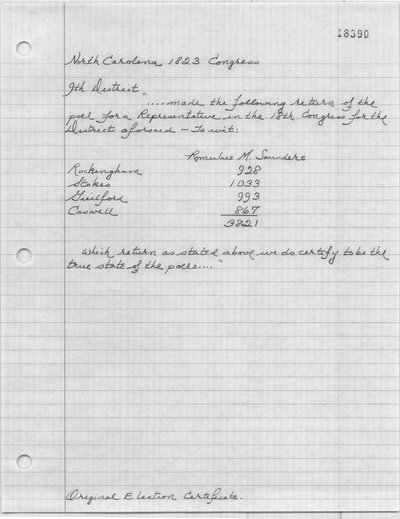 18390
North Carolina 1823 Congress
9th District
"....made the following return of the
poll for a Representative in the 18th Congress for the
District aforesaid – To wit:
Romulus M. Saunders
Rockingham 928
Stokes 1033
Guilford 993
Caswell 867
3821
Which return as stated above we do certify to be the
true state of the polls...."
Original Election Certificate.